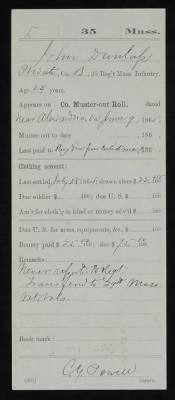 5 35 Mass.
John Dunlap
Private, Co. B, 35 Reg't Mass. Infantry.
Age 29 years.
Appears on Co. Muster-out Roll, dated
Near Alexandria Va June 9, 1865.
Muster-out to date , 186 .
Last paid to , 186 .
Clothing account:
Last settled , 1864; drawn since $22.
Due soldier $ 100; due U. S. $ 100
Am't for cloth'g in kind or money adv'd $ 100
Due U. S. for arms, equipments, &c., $ 100
Bounty paid $25 ; due $75
Remarks:
Never report to Regt.
Transferred to 29th Mass
Vet Vols.
Book mark:
C G Powell
Copyist.